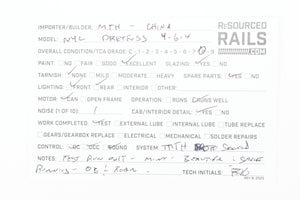 IMPORTER/BUILDER: MTH - CHINA
ReSOURCED
MODEL: NYC DREYFUSS 4-6-4
RAILS
.COM
OVERALL CONDITION/TCA GRADE C-1-2-3-4-5-6-7-8-9
PAINT: NO FAIR GOOD EXCELLENT GLAZING: YES NO
TARNISH: NONE MILD MODERATE HEAVY SPARE PARTS: YES NO
LIGHTING: FRONT REAR INTERIOR OTHER:
MOTOR: CAN OPEN FRAME OPERATION: RUNS RUNS WELL
NOISE (1 OF 10) 1 CAB/INTERIOR DETAIL: YES NO
WORK COMPLETED: TEST EXTERNAL LUBE INTERNAL LUBE TUBE REPLACE
GEARS/GEARBOX REPLACE ELECTRICAL MECHANICAL SOLDER REPAIRS
CONTROL: DC DCC SOUND SYSTEM: MTH
NOTES: TEST RUN ONLY - MINT! BEAUTIFUL
RUNNING -
TECH INITIALS:
REV B 2025